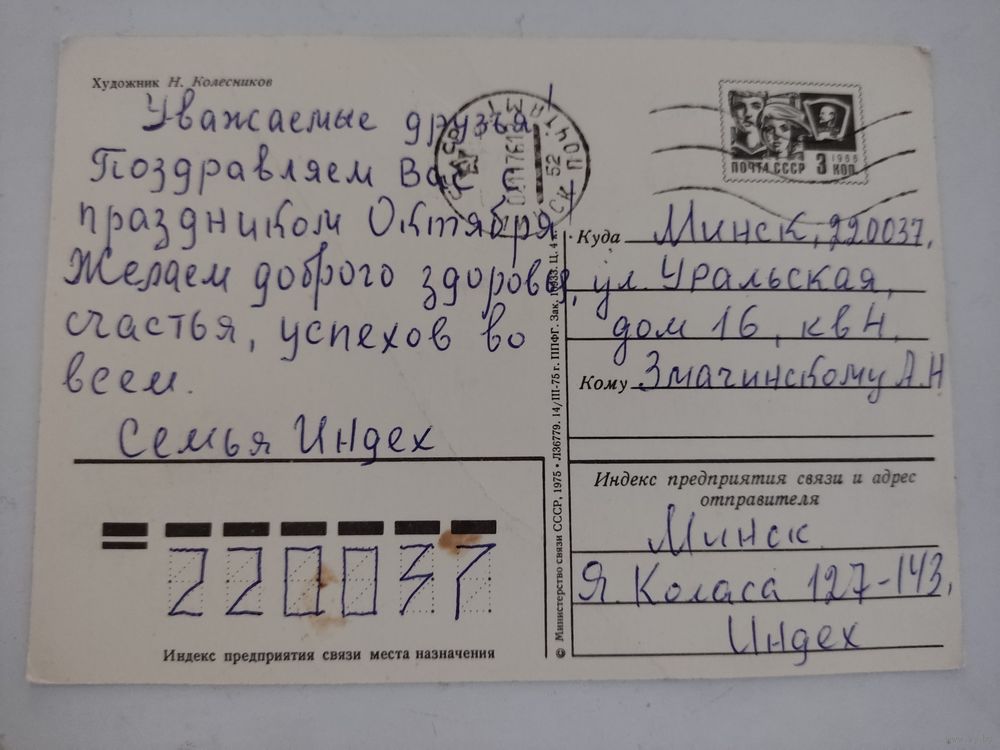 Художник Н. Колесников
Уважаемые друзья!
Поздравляем Вас с
праздником Октября
Желаем доброго здоровья,
счастья, успехов во
всем.
Семья Индех
220037
Индекс предприятия связи места назначения
© Министерство связи СССР, 1975 • Л36779. 14/III-75 г. ППФГ. Зак. Ц. 4 к.
ПОЧТАМТ
52
ПОЧТА СССР 3 КОП
1966
Куда Минск, 220037,
ул. Уральская,
дом 16, кв 4,
Кому Змачинскому А.Н
Индекс предприятия связи и адрес
отправителя
Минск
Я. Коласа 127-143,
Индех